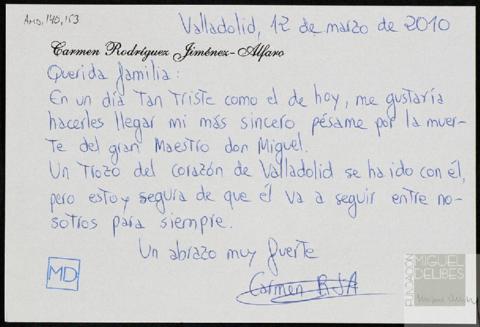 AMD, 140, 153
Valladolid, 12 de marzo de 2010
Carmen Rodríguez Jiménez-Alfaro
Querida familia:
En un día tan triste como el de hoy, me gustaría
hacerles llegar mi más sincero pésame por la muer-
te del gran Maestro don Miguel.
Un trozo del corazón de Valladolid se ha ido con él,
pero estoy segura de que él va a seguir entre no-
sotros para siempre.
Un abrazo muy fuerte
Carmen RJA
MD
FUNDACIÓN
MIGUEL
DELIBES